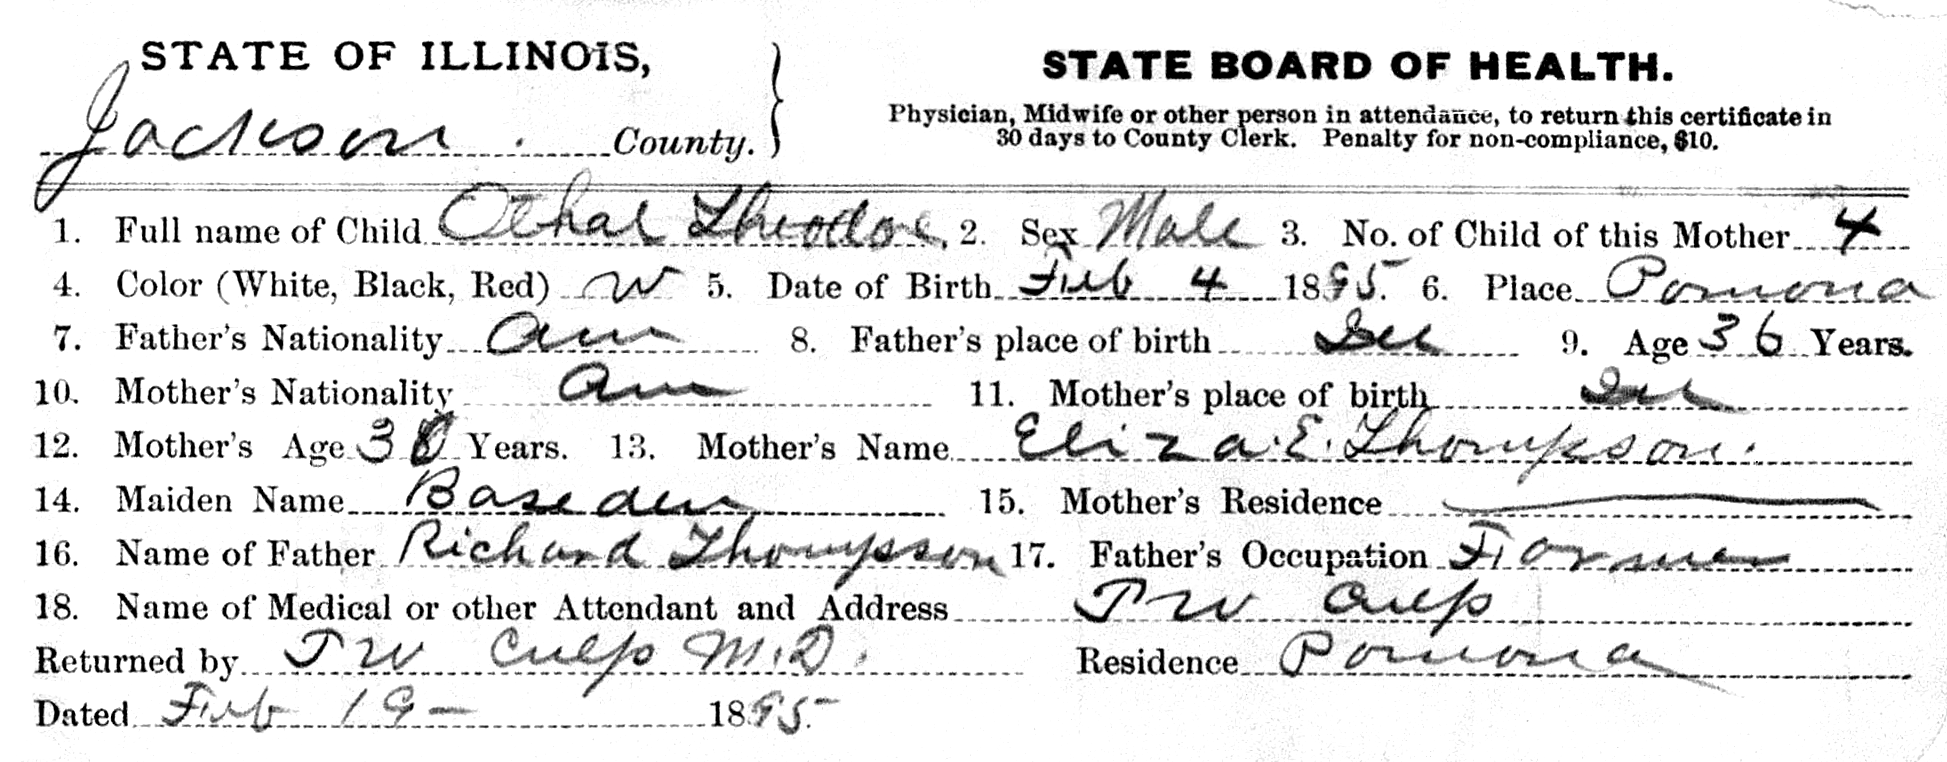 STATE OF ILLINOIS,
Jackson County.
STATE BOARD OF HEALTH.
Physician, Midwife or other person in attendance, to return this certificate in
30 days to County Clerk. Penalty for non-compliance, $10.
1. Full name of Child Othal Theodore, 2. Sex Male 3. No. of Child of this Mother 4
4. Color (White, Black, Red) W 5. Date of Birth Feb 4 1895. 6. Place Pomona
7. Father's Nationality Am 8. Father's place of birth Ill 9. Age 36 Years.
10. Mother's Nationality Am 11. Mother's place of birth Ill
12. Mother's Age 3 Years. 13. Mother's Name Eliza. E. Thompson.
14. Maiden Name Baseden 15. Mother's Residence
16. Name of Father Richard Thompson 17. Father's Occupation Farmer
18. Name of Medical or other Attendant and Address T W Culp
Returned by T W Culp M.D. Residence Pomona
Dated Feb 19 - 1895.